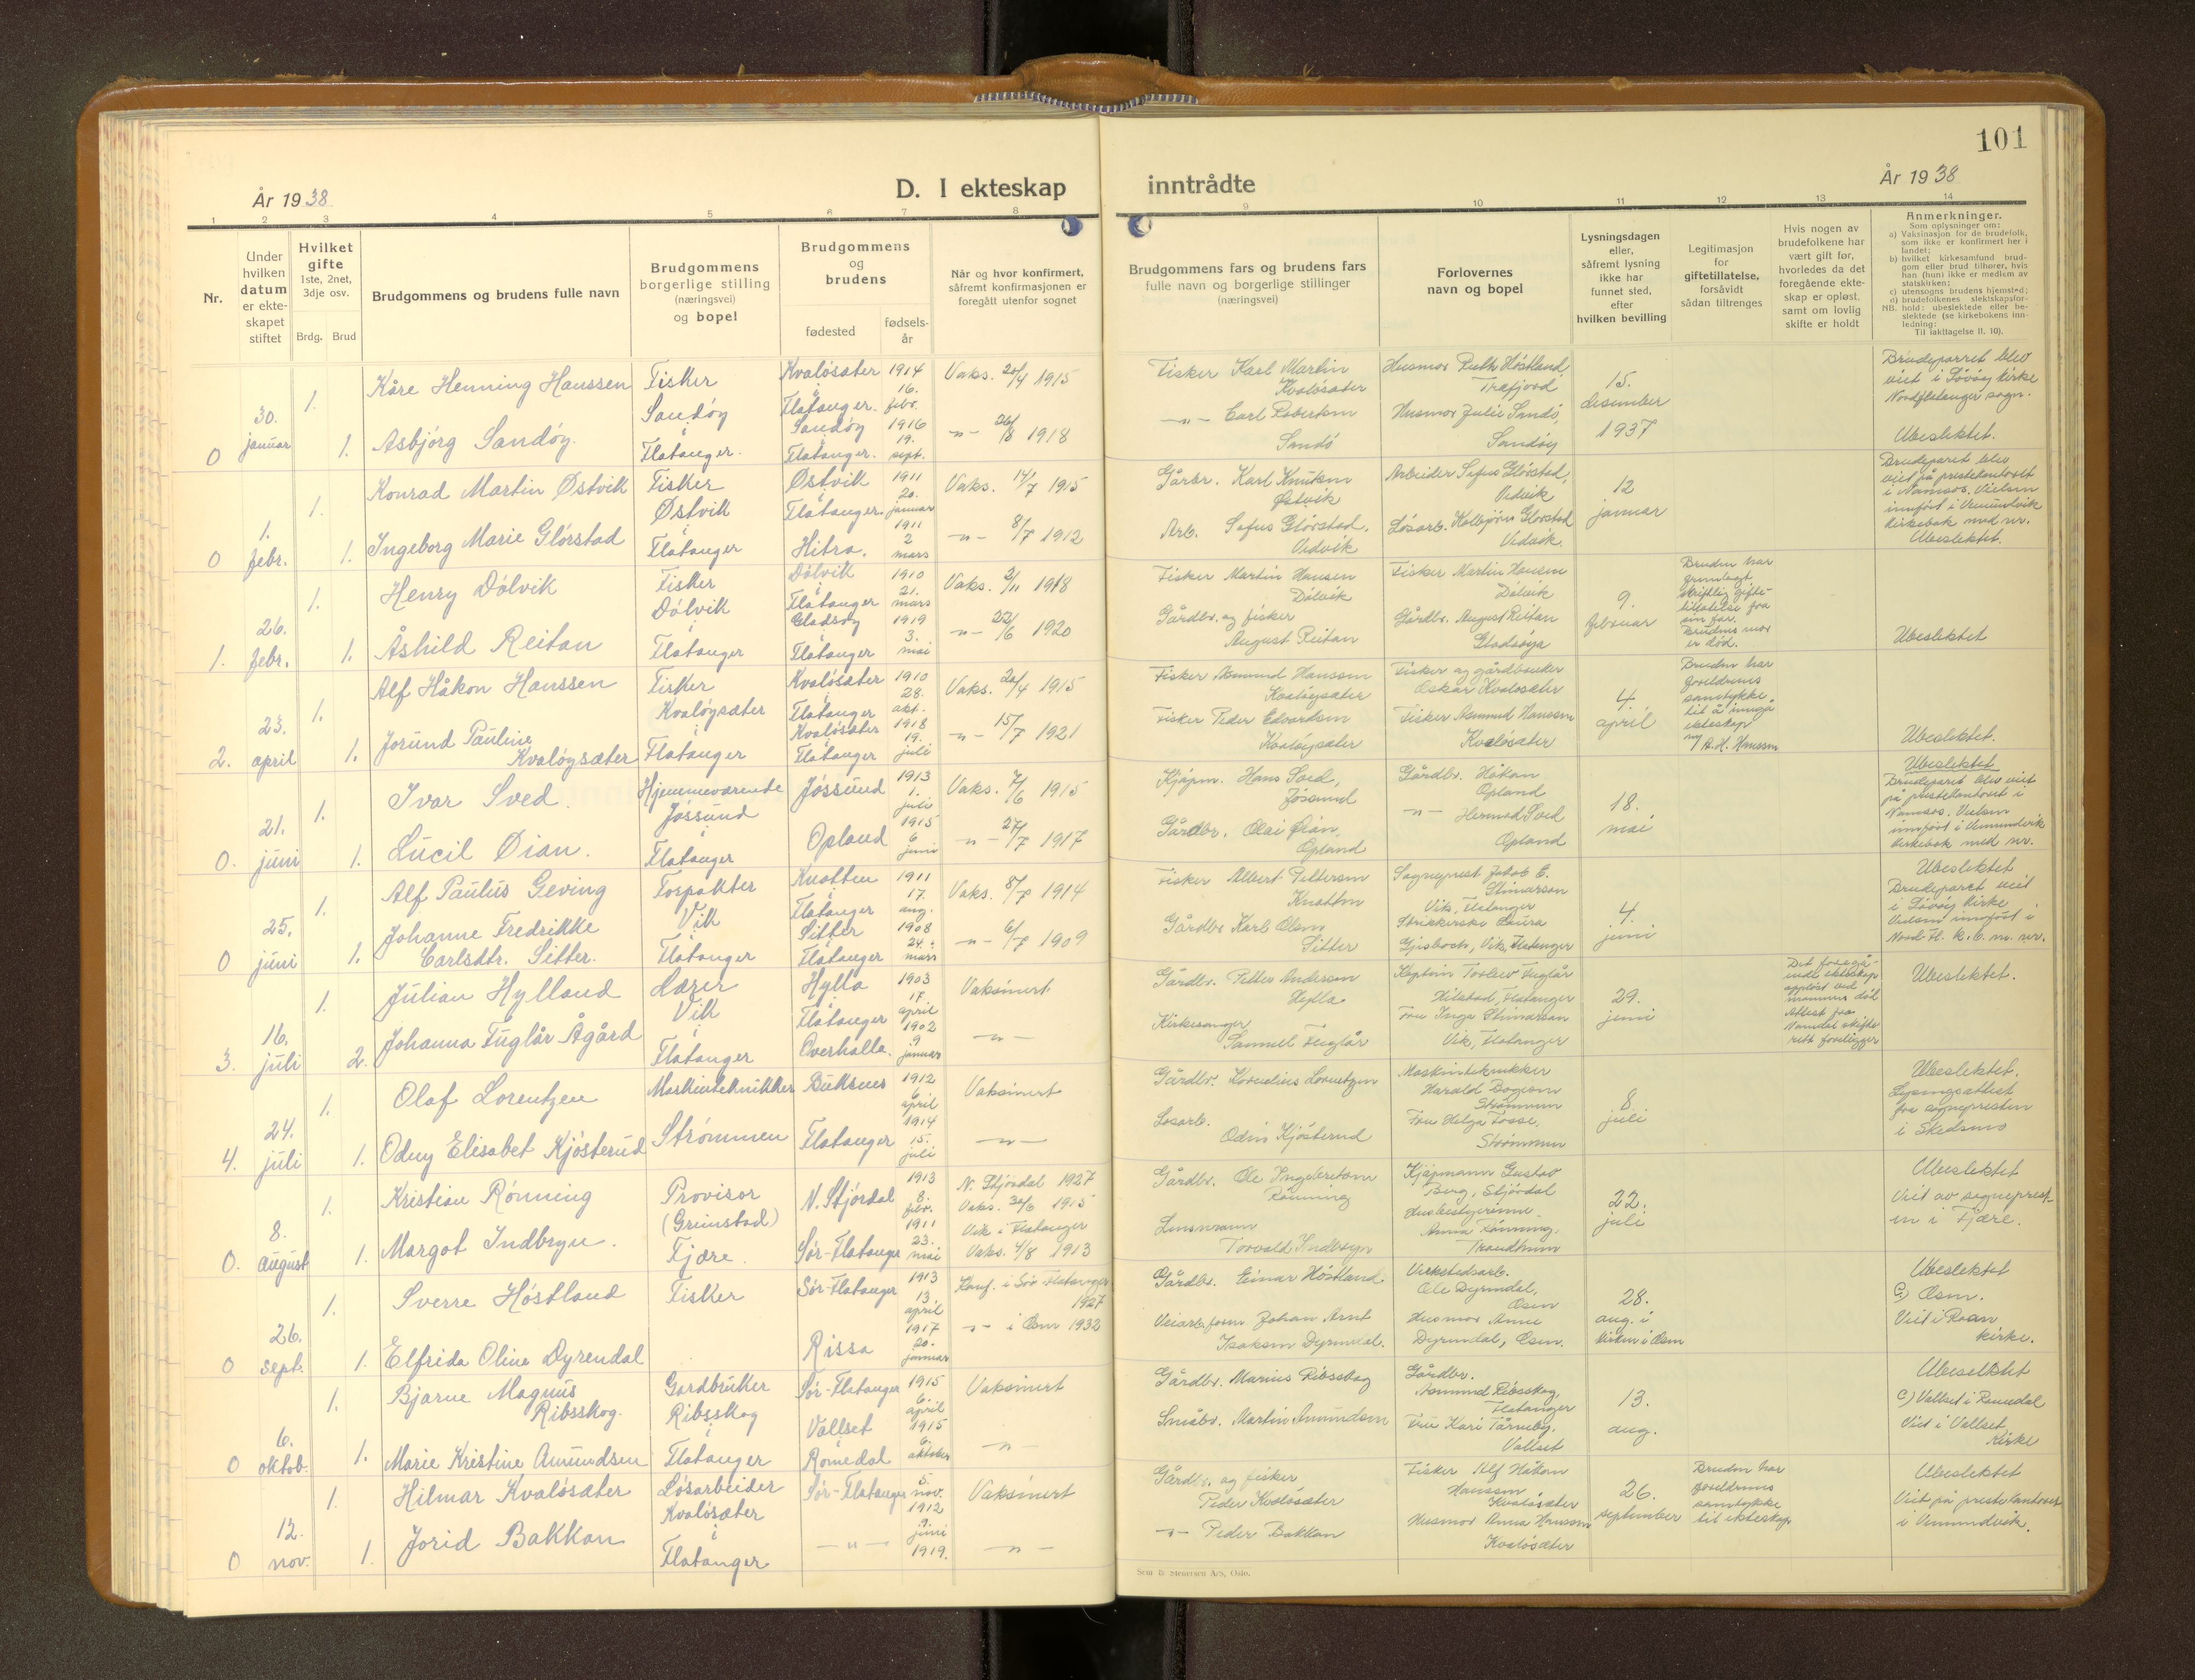 101
År 1938
D. I ekteskap
inntrådte
År 1938
1 2 3 4 5 6 7 8 9 10 11 12 13 14
Nr.
Under
hvilken
datum
er ekte-
skapet
stiftet
Hvilket
gifte
1ste, 2net,
3dje osv.
Brdg. Brud
Brudgommens og brudens fulle navn
Brudgommens
borgerlige stilling
(næringsvei)
og bopel
Brudgommens
og
brudens
fødested
fødsels-
år
Når og hvor konfirmert,
såfremt konfirmasjonen er
foregått utenfor sognet
Brudgommens fars og brudens fars
fulle navn og borgerlige stillinger
(næringsvei)
Forlovernes
navn og bopel
Lysningsdagen
eller,
såfremt lysning
ikke har
funnet sted,
efter
hvilken bevilling
Legitimasjon
for
giftetillatelse,
forsåvidt
sådan tiltrenges
Hvis nogen av
brudefolkene har
vært gift før,
hvorledes da det
foregående ekte-
skap er opløst,
samt om lovlig
skifte er holdt
Anmerkninger.
Som oplysninger om:
a) Vaksinasjon for de brudefolk,
som ikke er konfirmert her i
landet;
b) hvilket kirkesamfund brud-
gom eller brud tilhører, hvis
han (hun) ikke er medlem av
statskirken;
c) utensogns brudens hjemsted;
d) brudefolkenes slektskapsfor-
NB. hold: ubeslektede eller be-
slektede (se kirkebokens inn-
ledning:
Til iakttagelse II. 10).
0
30.
januar
1.
1.
Kåre Henning Hanssen
Asbjørg Sandøy.
Fisker
Sandøy
i
Flatanger.
Kvaløsæter
i
Flatanger.
Sandøy
Flatanger.
1914
16.
febr.
1916
19.
sept.
Vaks. 20/4 1915
-"- 26/8 1918
Fisker Karl Martin
Kvaløsæter
-"- Carl Robertsen
Sandø
Husmor Ruth Høstland,
Husmor Julie Sandø,
Sandøy
15.
desember
1937
Brudeparret blev
viet i Løvøy kirke
Nordflatanger sogn.
Ubeslektet.
0
1.
febr.
1.
1.
Konrad Martin Østvik
Ingeborg Marie Glørstad
Fisker
Østvik
i
Flatanger
Østvik
i
Flatanger.
Hitra.
1911
20.
januar
1911
2
mars
Vaks. 14/7 1915
-"- 8/7 1912
Gårbr. Karl Knutsen
Østvik
Arb. Sefus Glørstad,
Vedvik
Arbeider Sefus Glørstad,
Vedvik
Løsarb. Kolbjørn Glørstad
Vedvik.
12
januar
Brudeparet blev
viet på prestekontoret
i Namsos. Vielsen
innført i Vemundvik
kirkebok med nr.
Ubeslektet.
1.
26.
febr.
1.
1.
Henry Dølvik
Åshild Reitan
Fisker
Dølvik
i
Flatanger
Dølvik
i
Flatanger
Gladsøy
i
Flatanger
1910
21.
mars
1919
3.
mai
Vaks. 2/11 1918
-"- 22/6 1920
Fisker Martin Hansen
Dølvik
Gårdbr. og fisker
August Reitan
Fisker Martin Hansen
Dølvik
Gårdbr. August Reitan
Gladsøya
9.
februar
Bruden har
fremlagt
skriftlig gifte-
tillatelse fra
sin far.
Brudens mor
er død.
Ubeslektet
2.
23.
april
1.
1.
Alf Håkon Hanssen
Jorund Pauline
Kvaløysæter
Fisker
Kvaløysæter
i
Flatanger
Kvaløsæter
i
Flatanger
Kvaløsæter
i
Flatanger
1910
28.
okt.
1918
19.
juli
Vaks. 20/4 1915
-"- 15/7 1921
Fisker Asmund Hanssen
Kvaløysæter
Fisker Peder Edvardsen
Kvaløysæter
Fisker og gårdbruker
Oskar Kvaløsæter
Fisker Asmund Hanssen
Kvaløsæter
4.
april
Bruden har
foreldrenes
samtykke
til å inngå
ekteskap
m/ A. H. Hanssen
Ubeslektet.
0.
21.
juni
1.
1.
Ivar Sved.
Lucil Øian.
Hjemmeværende
Jøssund
i
Flatanger
Jøssund
Opland
1913
1.
juli
1915
6
juni
Vaks. 7/6 1915
-"- 27/7 1917
Kjøpm. Hans Sved,
Jøssund
Gårdbr. Olai Øian,
Opland
Gårdbr. Håkon
Opland
-"- Hermod Sved
Opland
18.
mai
Ubeslektet.
Brudeparet blev viet
på prestekontoret i
Namsos. Vielsen
innført i Vemundvik
kirkebok med nr.
0
25.
juni
1.
1.
Alf Paulus Geving
Johanne Fredrikke
Carlsdtr. Sitter.
Forpakter
Vik
i
Flatanger
Knotten
i
Flatanger
Sitter
i
Flatanger
1911
17.
aug.
1908
24.
mars
Vaks. 8/7 1914
-"- 6/7 1909
Fisker Albert Pettersen
Knotten
Gårdbr Karl Olsen
Sitter
Sogneprest Jakob E.
Vik, Flatanger
Laura
Vik, Flatanger
4.
juni
Ubeslektet
Brudeparet viet
i Løvøy kirke
Vielsen innført i
Nord-Fl. k.b. m. nr.
3.
16.
juli
1.
2.
Julian Hylland
Johanna Fuglår Ågård
Lærer
Vik
i
Flatanger
Hylla
i
Flatanger
Overhalla.
1903
17.
april
1902
9
januar
Vaksinert
-"-
Gårdbr. Petter Andersen
Hylla
Kirkesanger
Samuel Fuglår
Kaptein Torleiv Fuglår
Flatanger
Fru Inga
Vik, Flatanger
29.
juni
Det foregå-
ende ekteskap
oppløst ved
mannens død
Attest fra
Namdal skifte
rett foreligger
Ubeslektet.
4.
24.
juli
1.
1.
Olaf Lorentzen
Odny Elisabet Kjøsterud
Maskintekniker
Strømmen
Buksnes
Flatanger
1912
6
april
1914
15.
juli
Vaksinert
-"-
Gårdbr. Kornelius Lorentzen
Løsarb.
Odin Kjøsterud
Maskintekniker
Harald Bogesen
Strømmen
Fru Helga Fosse,
Strømmen
8
juli
Ubeslektet.
Lysingsattest
fra sognepresten
i Skedsmo
0.
8.
august
1.
1.
Kristian Rønning
Margot Indbryn.
Provisor
(Grimstad)
Fjære.
N. Stjørdal
Sør-Flatanger
1913
8.
febr.
1911
23.
mai
N. Stjørdal 1927
Vaks. 30/6 1915
Vik i Flatanger
Vaks. 4/8 1913
Gårdbr. Ole Ingebretsen
Rønning
Lensmann
Torvald Indbryn
Kjøpmann Gustav
Berg, Stjørdal
Husbestyrerinne
Anna Rønning,
Trondheim
22.
juli
Ubeslektet
Viet av sogneprest-
en i Fjære.
0
26.
sept.
1.
1.
Sverre Høstland
Elfrida Oline Dyrendal
Fisker
Sør-Flatanger
Rissa
1913
13.
april
1917
20.
januar
Konf. i Sør Flatanger
1927
-"- i Osen 1932
Gårdbr. Einar Høstland.
Veiarb.form Johan Arnt
Isaksen Dyrendal.
Ole Dyrendal,
Osen
Husmor Anne
Dyrendal, Osen.
28.
aug. i
kirken i Osen
Ubeslektet
c) Osen.
Viet i Roan
kirke.
0
6.
oktob.
1.
1.
Bjarne Magnus
Ribsskog.
Marie Kristine Amundsen
Gardbruker
Ribsskog
i
Flatanger
Sør-Flatanger
Vallset
i
Romedal
1915
6.
april
1915
6.
oktober
Vaksinert
-"-
Gårdbr. Marius Ribsskog
Småbr. Martin Amundsen
Gårdbr.
Asmund Ribsskog,
Flatanger
Fru Kari Tårneby,
Vallset
13.
aug.
Ubeslektet
c) Vallset i Romedal
Viet i Vallset
kirke
0
12.
nov.
1.
1.
Hilmar Kvaløsæter
Jorid Bakkan
Løsarbeider
Kvaløsæter
i
Flatanger
Sør-Flatanger
-"-
5.
nov.
1912
9.
juni
1919.
Vaksinert
-"-
Gårdbr. og fisker
Peder Kvaløsæter
-"- Peder Bakkan
Fisker Alf Håkon
Hanssen
Kvaløsæter
Husmor Anna Hanssen
Kvaløsæter
26.
september
Bruden har
foreldrenes
samtykke
til ekteskap
Ubeslektet
Viet på prestekontoret
i Vemundvik.
Sem & Stenersen A/s, Oslo.